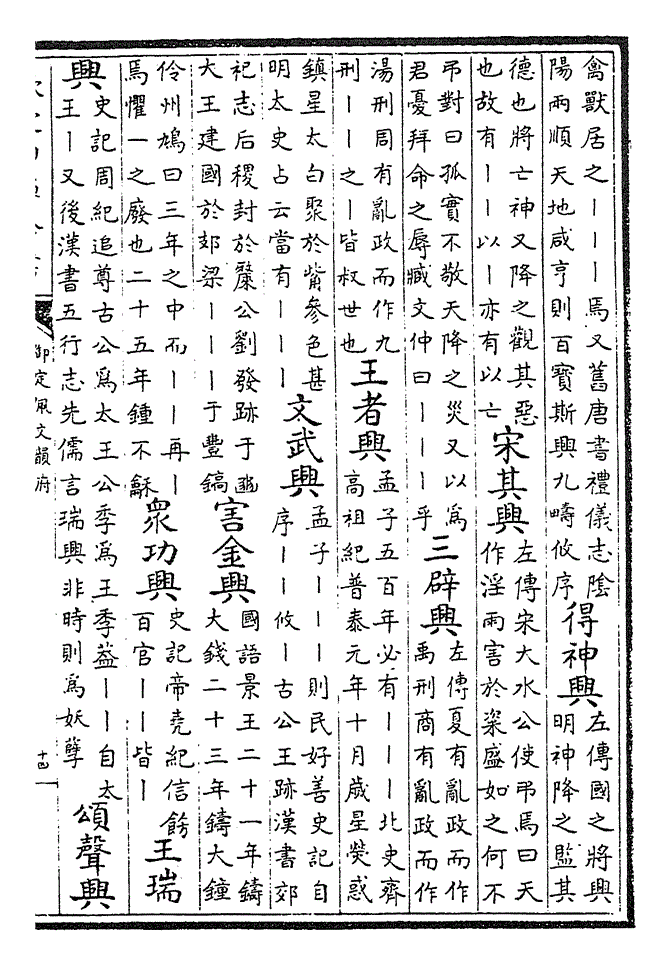 禽獸居之｜｜｜焉又舊唐書禮儀志陰
陽兩順天地咸亨則百寶斯興九疇攸序
得神興
左傳國之將興
明神降之監其
德也將亡神又降之觀其惡
也故有｜｜以｜亦有以亡
宋其興
左傳宋大水公使弔焉曰天
作淫雨害於粢盛如之何不
弔對曰孤實不敬天降之災又以爲
君憂拜命之辱臧文仲曰｜｜｜乎
三辟興
左傳夏有亂政而作
禹刑商有亂政而作
湯刑周有亂政而作九
刑｜｜之｜皆叔世也
王者興
孟子五百年必有｜｜｜北史齊
高祖紀普泰元年十月歲星熒惑
鎮星太白聚於觜參色甚
明太史占云當有｜｜｜
文武興
孟子｜｜｜則民好善史記自
序｜｜攸｜古公王跡漢書郊
祀志后稷封於斄公劉發跡于豳
大王建國於郊梁｜｜｜于豐鎬
害金興
國語景王二十一年鑄
大錢二十三年鑄大鐘
伶州鳩曰三年之中而｜｜再｜
焉懼一之廢也二十五年鐘不龢
衆功興
史記帝堯紀信飭
百官｜｜皆｜
王瑞
興
史記周紀追尊古公爲太王公季爲王季葢｜｜自太
王｜又後漢書五行志先儒言瑞興非時則爲妖孽
頌聲興
御定佩文韻府
十四